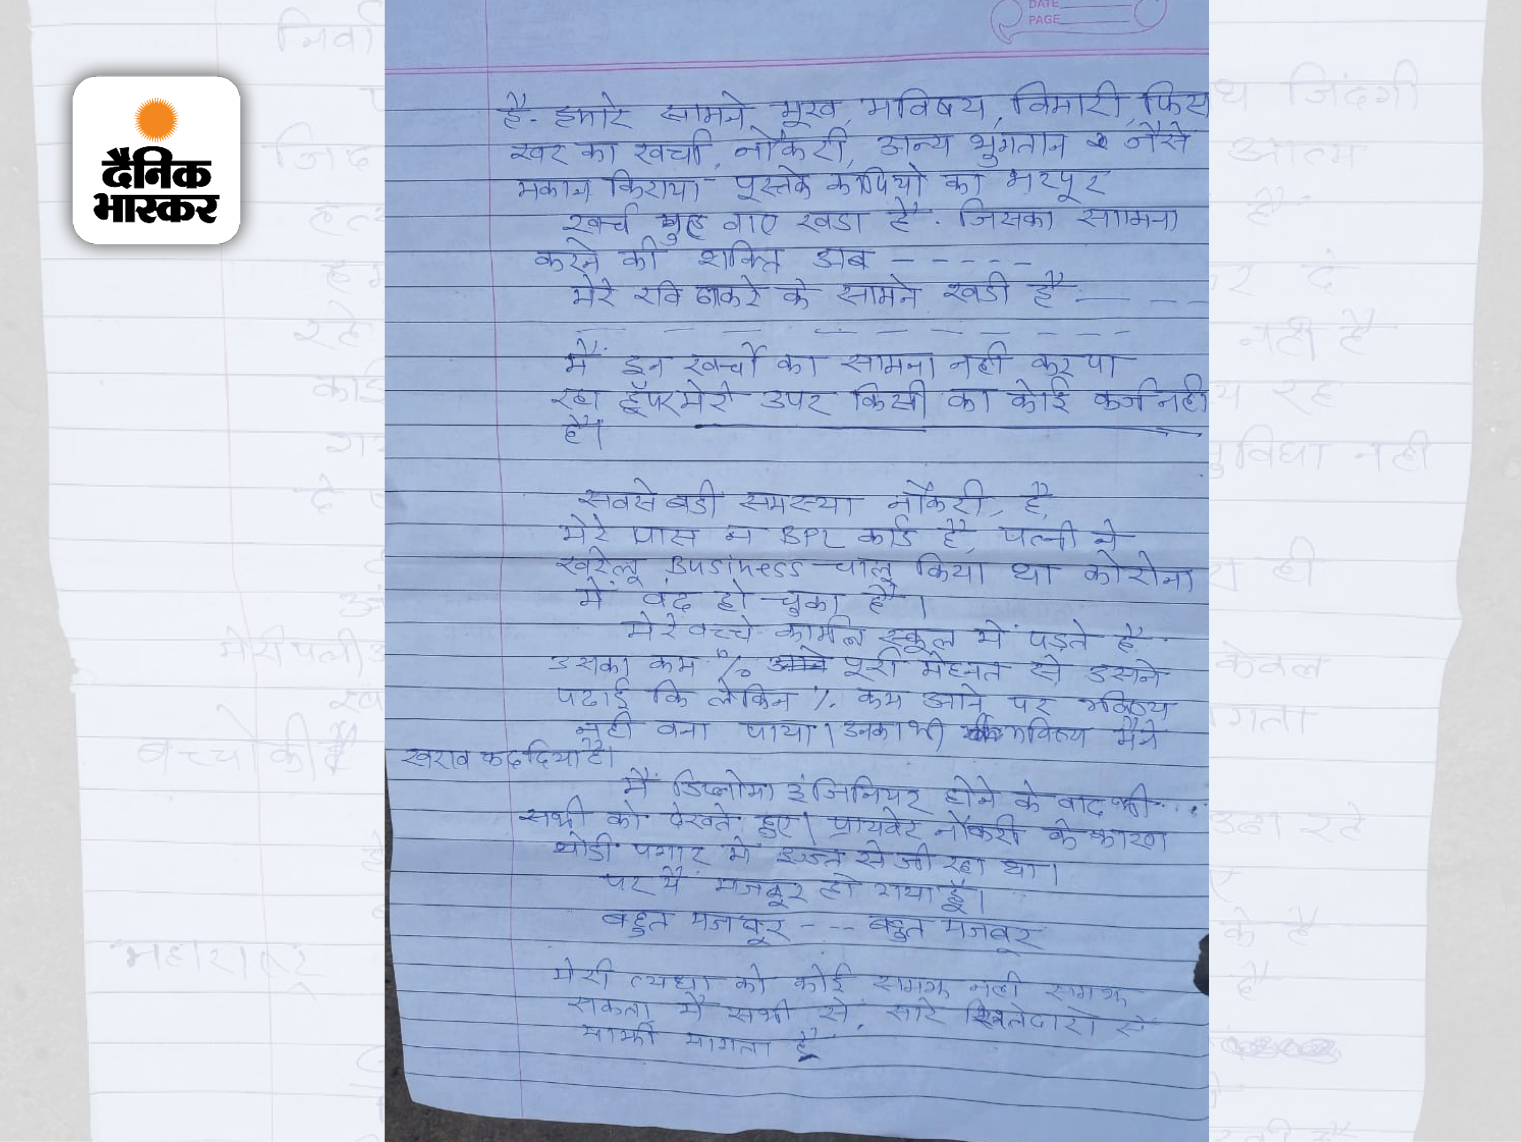 दैनिक
भास्कर
DATE
PAGE
है. हमारे सामने भूख, भविषय, विमारी, फिस
खर का खर्चा, नौकरी, अन्य भुगतान जैसे
मकान किराया पुस्तके कापियो का भरपूर
खर्च मुह वाए खडा है. जिसका सामना
करने की शक्ति अब -----
मेरे रवि ठाकरे के सामने खडी है. — — —
मैं इन खर्चो का सामना नही कर पा
रहा हूँ पर मेरे उपर किसी का कोई कर्ज नही
है।
सबसे बडी समस्या नौकरी, है,
मेरे पास न BPL कार्ड है, पत्नी ने
घरेलू Business चालू किया था कोरोना
में वंद हो चुका है।
मेरे वच्चे कामन स्कूल में पड़ते है
उसका कम % पूरी मेहनत से उसने
पढाई कि लेकिन % कम आने पर भविष्य
नही वना पाया। उनका भी भविष्य मैने
खराव कर दिया है।
मैं डिप्लोमा इंजिनियर होने के वाद भी
सभी को देखते हुए। प्रायवेट नौकरी के कारण
थोडी पगार में इज्जत से जी रहा था।
पर मैं मजबूर हो गया हूँ।
बहुत मजबूर --- बहुत मजबूर
मेरी व्यथा को कोई समझ नही समझ
सकता मैं सभी से, सारे रिश्तेदारो से
माफी मागता हूँ